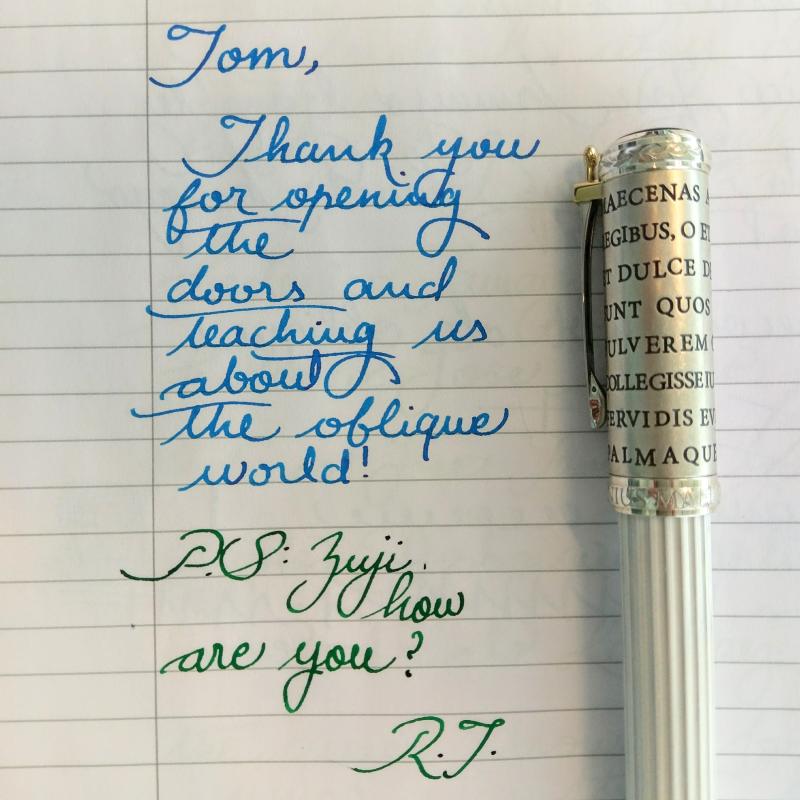 Tom,
Thank you
for opening
the
doors and
teaching us
about
the oblique
world!
P.S: Zuji.
how
are you?
R.T.
AECENAS A
EGIBUS, O E
T DULCE D
UNT QUOS
ULVEREM
OLLEGISSE IU
ERVIDIS EV
ALMAQUE